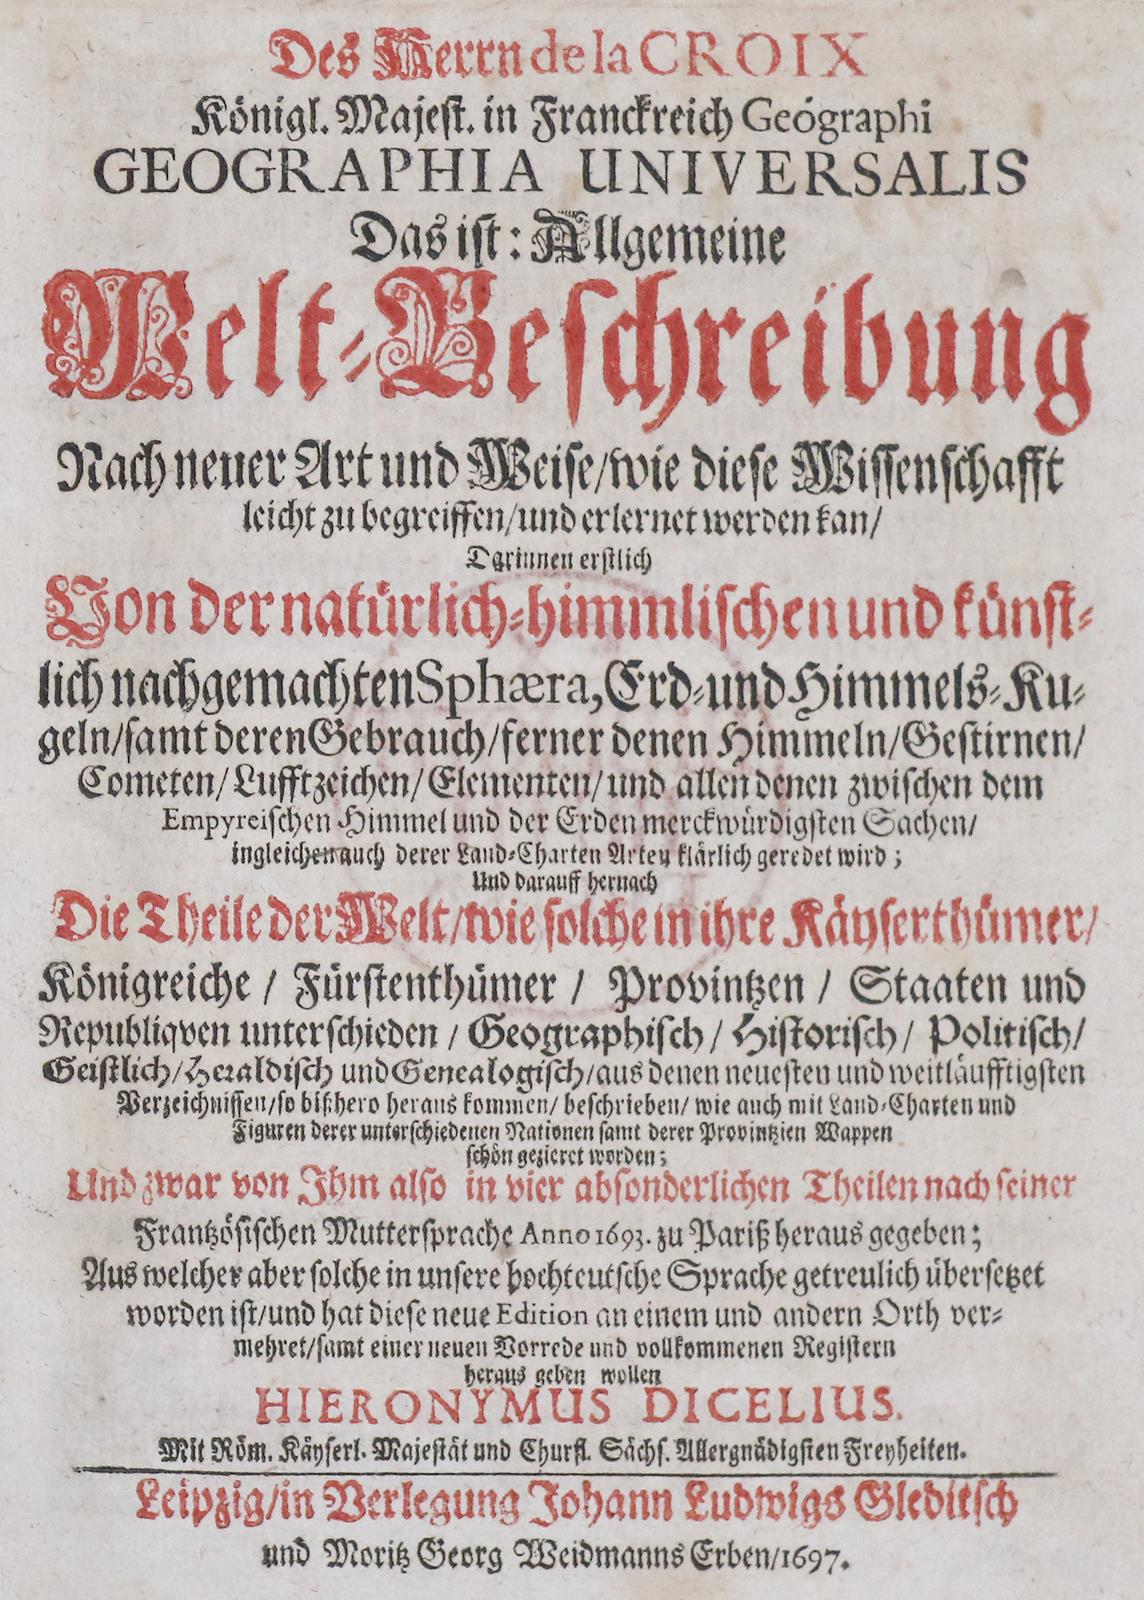 Des Herrn de la CROIX
Königl. Majest. in Franckreich Geógraphi
GEOGRAPHIA UNIVERSALIS
Das ist: Allgemeine
Welt-Beschreibung
Nach neuer Art und Weise/wie diese Wissenschafft
leicht zu begreiffen/und erlernet werden kan/
Darinnen erstlich
Von der natürlich-himmlischen und künst-
lich nachgemachten Sphæra, Erd-und Himmels-Ku-
geln/samt deren Gebrauch/ferner denen Himmeln/Gestirnen/
Cometen/Lufftzeichen/Elementen/und allen denen zwischen dem
Empyreischen Himmel und der Erden merckwürdigsten Sachen/
ingleichen auch derer Land-Charten Arten klärlich geredet wird;
Und darauff hernach
Die Theile der Welt/wie solche in ihre Käyserthümer/
Königreiche / Fürstenthümer / Provintzen / Staaten und
Republiqven unterschieden / Geographisch / Historisch / Politisch/
Geistlich/Heraldisch und Genealogisch/aus denen neuesten und weitläufftigsten
Verzeichnissen/so bißhero heraus kommen/ beschrieben/ wie auch mit Land-Charten und
Figuren derer unterschiedenen Nationen samt derer Provintzien Wappen
schön gezieret worden;
Und zwar von Ihm also in vier absonderlichen Theilen nach seiner
Frantzösischen Muttersprache Anno 1693. zu Pariß heraus gegeben;
Aus welcher aber solche in unsere hochteutsche Sprache getreulich übersetzet
worden ist/und hat diese neue Edition an einem und andern Orth ver-
mehret/samt einer neuen Vorrede und vollkommenen Registern
heraus geben wollen
HIERONYMUS DICELIUS.
Mit Röm. Käyserl. Majestät und Churfl. Sächs. Allergnädigsten Freyheiten.
Leipzig/in Verlegung Johann Ludwigs Gleditsch
und Moritz Georg Weidmanns Erben/1697.